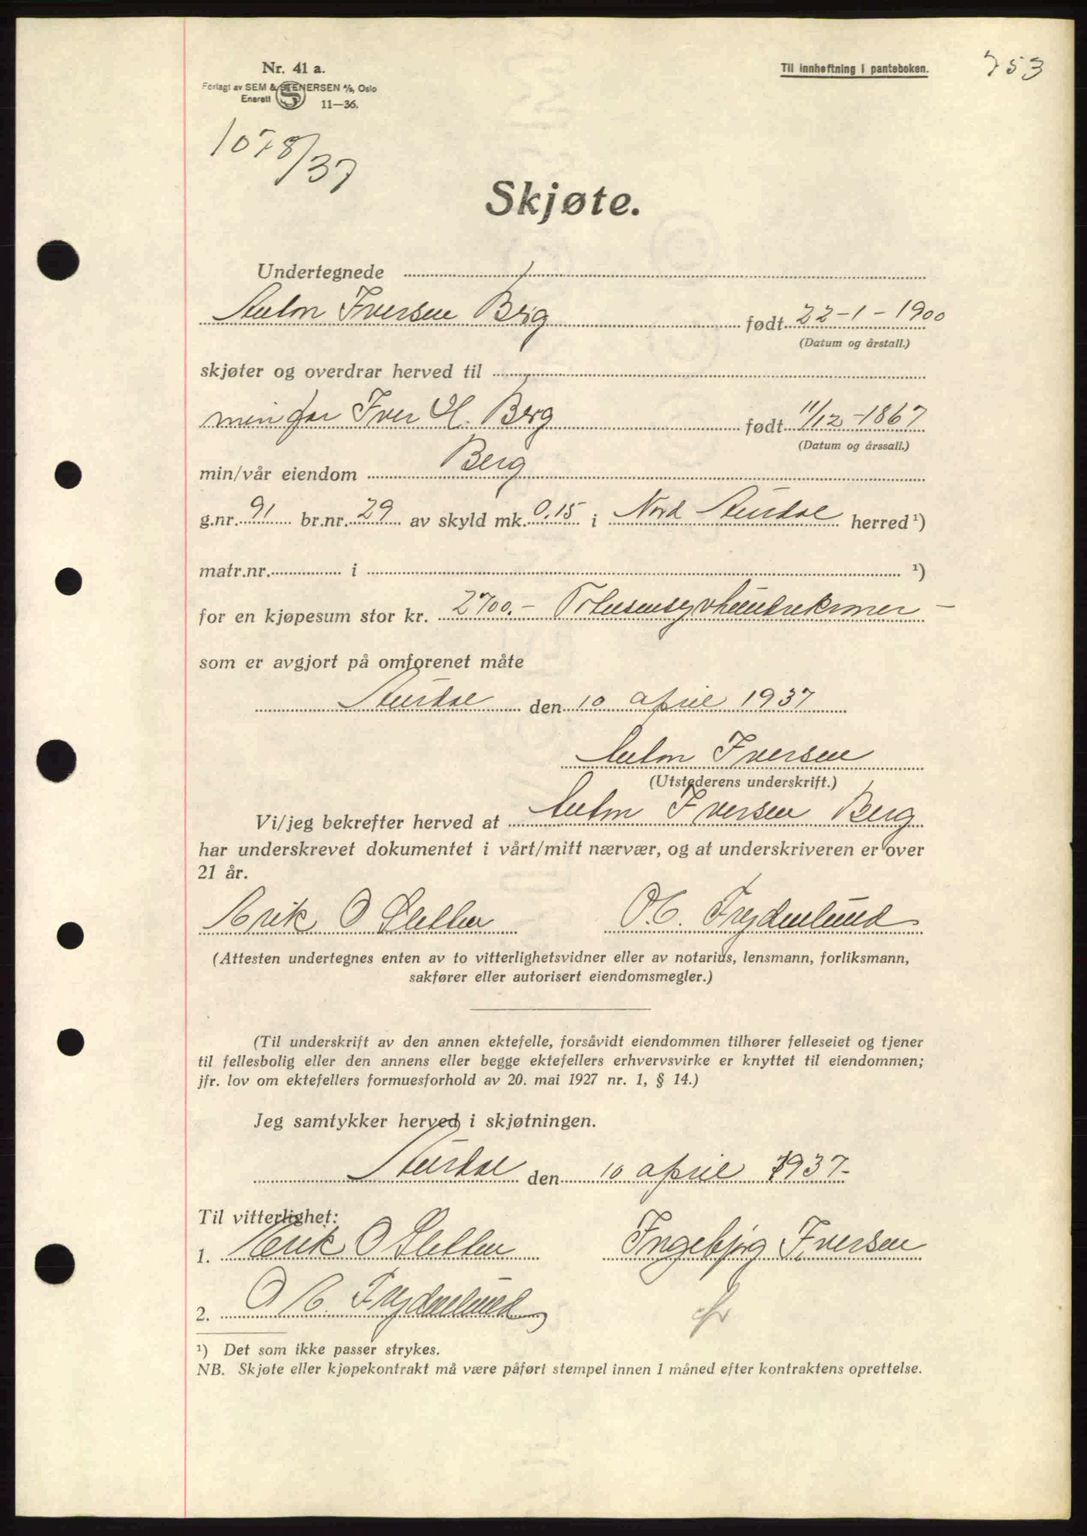 Nr. 41 a.
Forlagt av SEM & STENERSEN A/S, Oslo
Enerett 11—36.
Til innheftning i panteboken.
753
1078/37
Skjøte.
Undertegnede
Anton Iversen Berg født 22-1-1900
(Datum og årstall.)
skjøter og overdrar herved til
min far Iver H. Berg født 11/12-1867
(Datum og årssall.)
min/vår eiendom Berg
g.nr. 91 br.nr. 29 av skyld mk. 0.15 i Nord Aurdal herred ¹)
matr.nr. i ¹)
for en kjøpesum stor kr. 2700.- Totusensyvhundrekroner -
som er avgjort på omforenet måte
Aurdal den 10 april 1937
Anton Iversen
(Utstederens underskrift.)
Vi/jeg bekrefter herved at Anton Iversen Berg
har underskrevet dokumentet i vårt/mitt nærvær, og at underskriveren er over
21 år.
Erik O Sletten O.C. Frydenlund
(Attesten undertegnes enten av to vitterlighetsvidner eller av notarius, lensmann, forliksmann,
sakfører eller autorisert eiendomsmegler.)
(Til underskrift av den annen ektefelle, forsåvidt eiendommen tilhører felleseiet og tjener
til fellesbolig eller den annens eller begge ektefellers erhvervsvirke er knyttet til eiendommen;
jfr. lov om ektefellers formuesforhold av 20. mai 1927 nr. 1, § 14.)
Jeg samtykker herved i skjøtningen.
Aurdal den 10 april 1937-
Til vitterlighet:
1. Erik O Sletten Ingebjørg Iversen
2. O. C. Frydenlund
¹) Det som ikke passer strykes.
NB. Skjøte eller kjøpekontrakt må være påført stempel innen 1 måned efter kontraktens oprettelse.